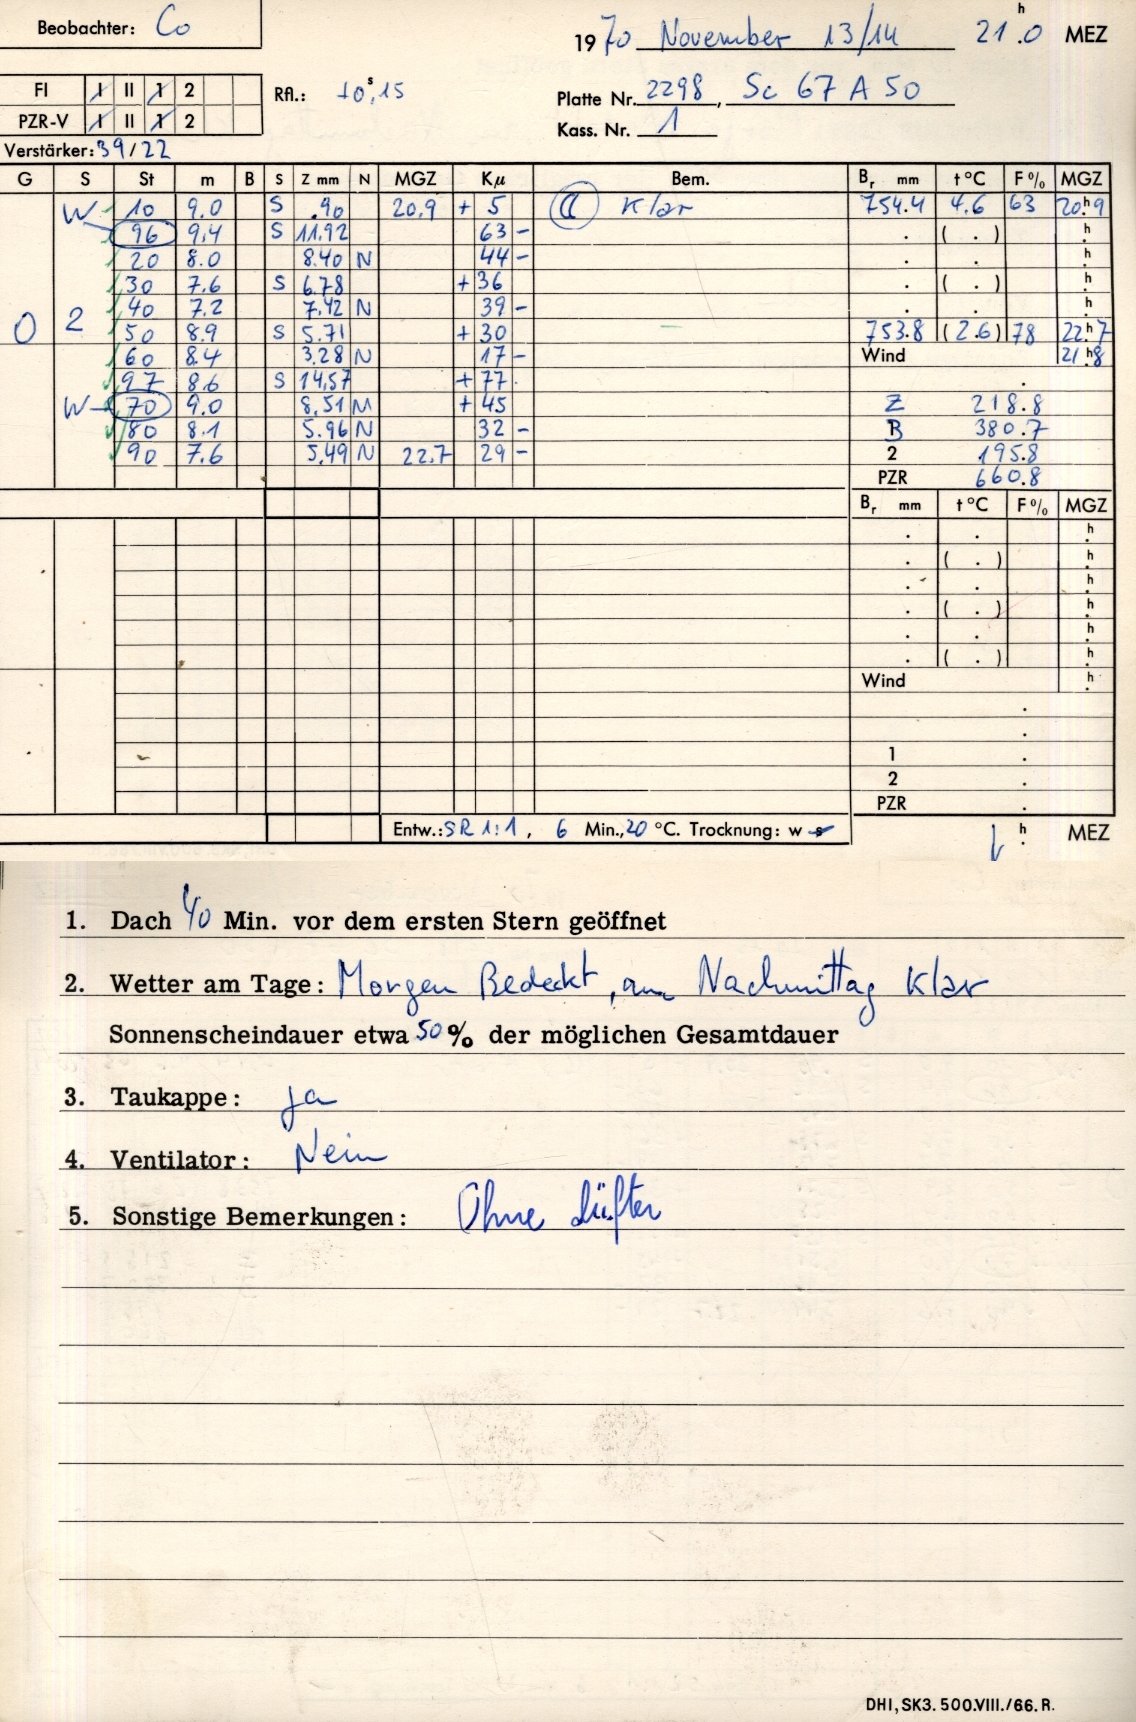 Beobachter: Co
1970 November 13/14 21h.0 MEZ
FI I II 1 2 Rfl.: +0s,15
Platte Nr. 2298, Sc 67 A 50
PZR-V I II 1 2
Kass. Nr. 1
Verstärker: 39/22
G S St m B S Z mm N MGZ Kμ Bem. Br mm t °C F % MGZ
W 10 9.0 S .90 20.9 + 5 Klar 754.4 4.6 63 20.h9
96 9.4 S 11.92 63 – . ( . ) h.
20 8.0 8.40 N 44 – . . h.
30 7.6 S 6.78 + 36 . ( . ) h.
40 7.2 7.42 N 39 – . . h.
O 2 50 8.9 S 5.71 + 30 753.8 (2.6) 78 22.h7
60 8.4 3.28 N 17 – Wind 21.h8
97 8.6 S 14,57 + 77 .
W 70 9.0 8,51 + 45 Z 218.8
80 8.1 5.96 N 32 – B 380.7
90 7.6 5,49 N 22.7 29 – 2 195.8
PZR 660.8
Br mm t °C F % MGZ
. . h.
. ( . ) h.
. . h.
. ( . ) h.
. . h.
. ( . ) h.
Wind h.
.
1 .
2 .
PZR .
Entw.: SR 1:1, 6 Min., 20 °C. Trocknung: w s
h. MEZ
1. Dach 40 Min. vor dem ersten Stern geöffnet
2. Wetter am Tage: Morgen Bedeckt, am Nachmittag Klar
Sonnenscheindauer etwa 50% der möglichen Gesamtdauer
3. Taukappe: ja
4. Ventilator: Nein
5. Sonstige Bemerkungen: Ohne Lüfter
DHI, SK3. 500.VIII./66. R.